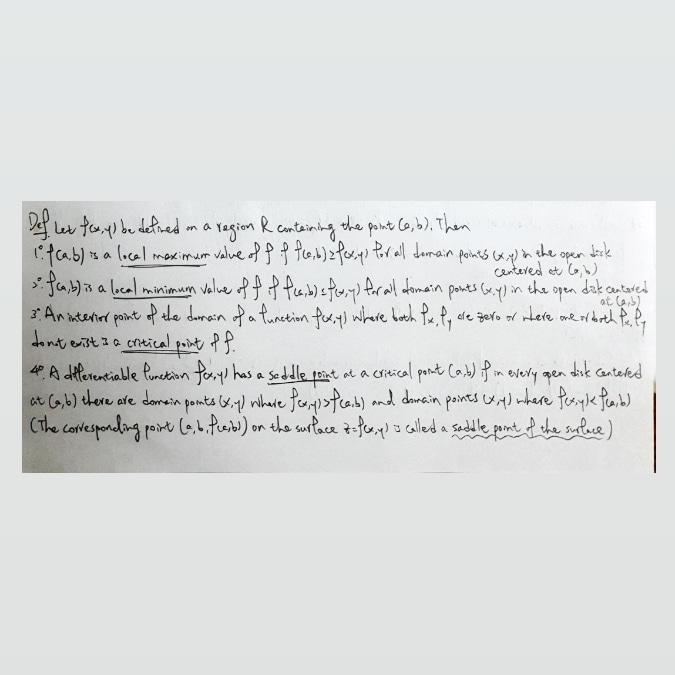 Def Let f(x,y) be defined on a region R containing the point (a,b). Then
1°. f(a,b) is a local maximum value of f if f(a,b)≥f(x,y) for all domain points (x,y) in the open disk
centered at (a,b)
2°. f(a,b) is a local minimum value of f if f(a,b)≤f(x,y) for all domain points (x,y) in the open disk centered
at (a,b)
3°. An interior point of the domain of a function f(x,y) where both fx, fy are zero or where one or both fx, fy
don't exist is a critical point of f.
4°. A differentiable function f(x,y) has a saddle point at a critical point (a,b) if in every open disk centered
at (a,b) there are domain points (x,y) where f(x,y)>f(a,b) and domain points (x,y) where f(x,y)<f(a,b)
(The corresponding point (a,b,f(a,b)) on the surface z=f(x,y) is called a saddle point of the surface)